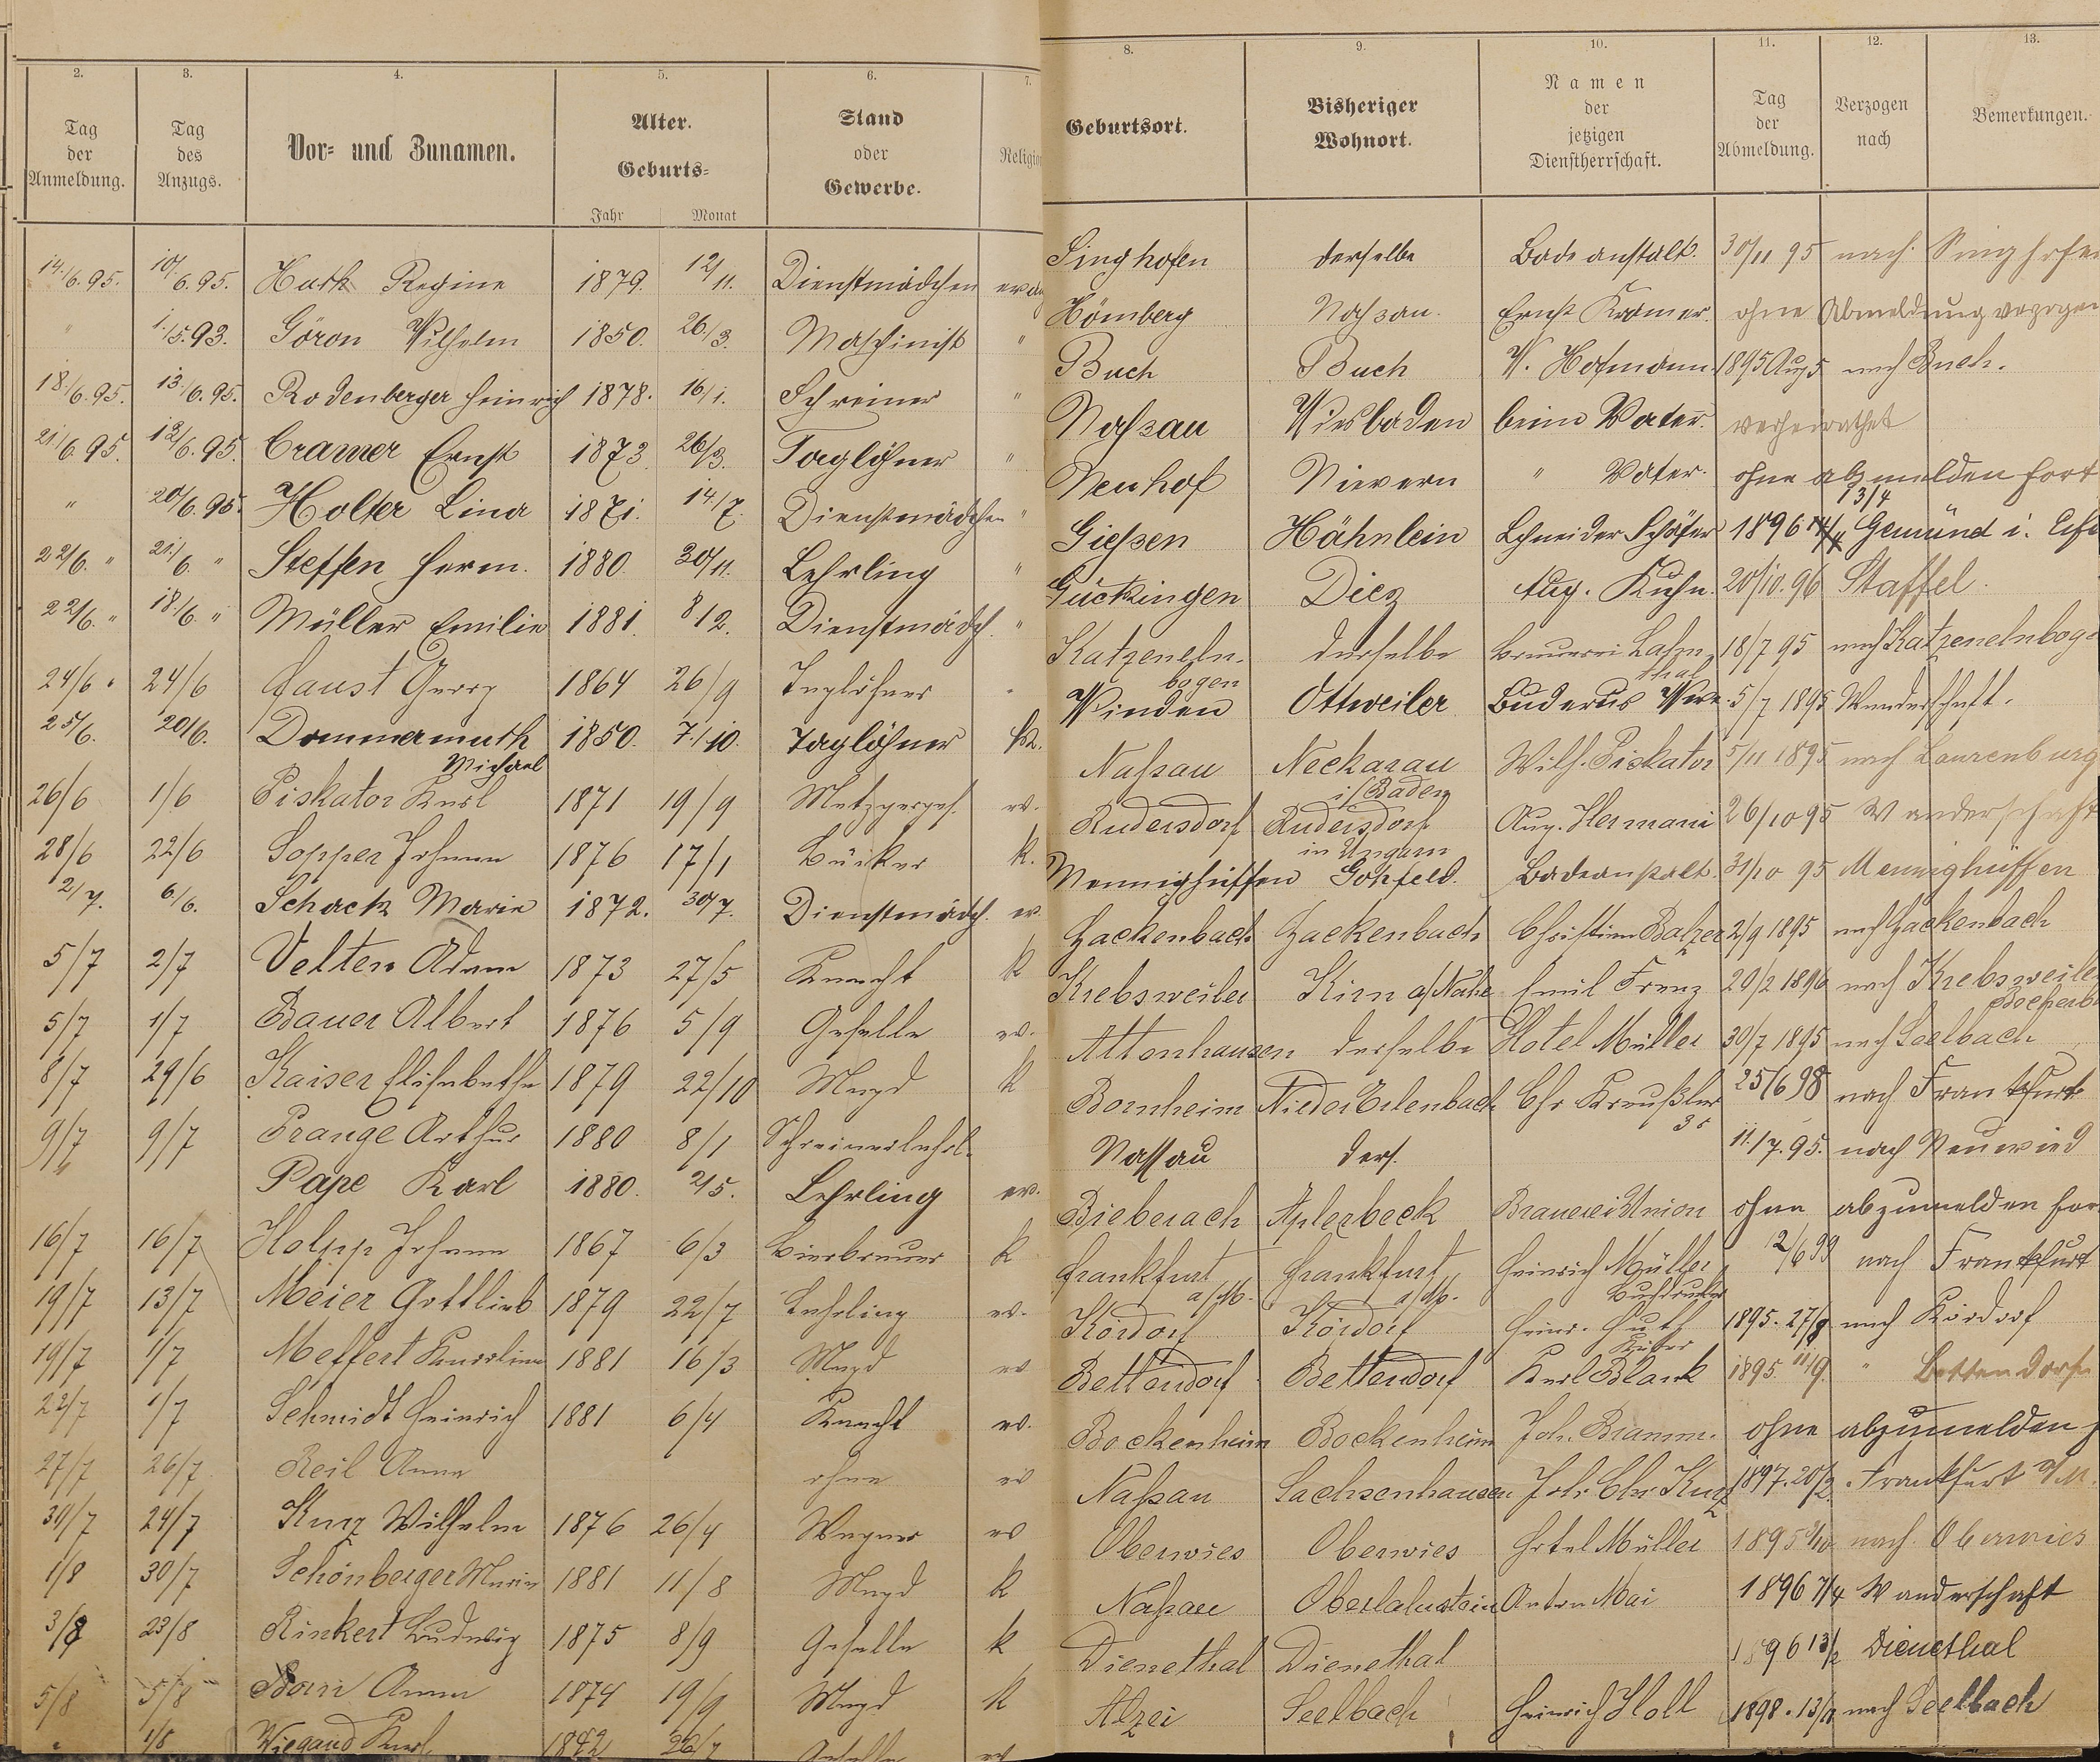 2. 3. 4. 5. 6. 7. 8. 9. 10. 11. 12. 13.
Tag der Anmeldung. Tag des Anzugs. Vor- und Zunamen. Alter. Geburts- Jahr Monat Stand oder Gewerbe. Religio Geburtsort. Bisheriger Wohnort. Namen der jetzigen Dienstherrschaft. Tag der Abmeldung. Verzogen nach Bemerkungen.
14./6.95. 10/6.95. Huth Regine 1879. 12/11. Dienstmädchen evan
" 1./5.93. Göron Wilhelm 1850. 26./3. Maschinist "
18./6.95. 13./6.95. Rodenberger Heinrich 1878. 16/1. Schreiner "
21./6.95. 12/6.95. Cramer Ernst 1873. 26/3. Taglöhner "
" 20/6.95. Holter Lina 1871. 14./7. Dienstmädchen "
22/6. " 21./6. " Steffen Herm. 1880. 30/11. Lehrling "
22/6. " 18./6. " Müller Emilie 1881. 8/2. Dienstmädch. "
24/6 " 24/6 Faust Georg 1864 26/9 Taglöhner "
25/6. 20/6. Dommermuth Michael 1850. 7./10. Taglöhner k.
26/6 1/6 Piskator Karl 1871 19/9 Metzgerges. ev.
28/6 22/6 Sopper Johann 1876 17/1 Bäcker k.
2/7. 6/6. Schack Marie 1872. 30/7. Dienstmädch. ev.
5/7 2/7 Velten Adam 1873 27/5 Knecht k
5/7 1/7 Bauer Albert 1876 5/9 Geselle ev.
8/7 29/6 Kaiser Elisabetha 1879 22/10 Magd k
9/7 9/7 Prange Arthur 1880 8/1 Schreinerlehrl.
" Pape Karl 1880. 2/5. Lehrling ev.
16/7 16/7 Holpp Johann 1867 6/3 Bierbrauer k
19/7 13/7 Meier Gottlieb 1879 22/7 Lehrling ev.
19/7 1/7 Meffert Karoline 1881 16/3 Magd ev
22/7 1/7 Schmidt Heinrich 1881 6/4 Knecht ev.
27/7 26/7 Reil Anna ohne ev
30/7 24/7 Kurz Wilhelm 1876 26/4 Wagner ev
1/8 30/7 Schönberger Maria 1881 11/8 Magd k
3/8 23/8 Rinkert Ludwig 1875 8/9 Geselle k
5/8 5/8 Anna 1874 19/9 Magd k
" 1/8 Wiegand Karl 1842 26/7 Geselle ev
Singhofen derselbe Badeanstalt. 30/11 95 nach Singhofen
Hömberg Nassau. Ernst Kramer. ohne Abmeldung verzogen
Buch Buch W. Hofmann 1895 Aug 5 nach Buch.
Nassau Wiesbaden beim Vater. verheirathet
Neuhof Nievern " Vater. ohne abzumelden fort
Giessen Hähnlein Schneider Schäfer 1896 13/4 Gemünd i. Eife
Gückingen Diez Aug. Kuhn. 20/10.96 Staffel.
Katzenelnbogen derselbe Brauerei Lahnthal 18/7 95 nach Katzenelnboge
Winden Ottweiler Buderus Wwe. 5/7 1895 Wanderschaft.
Nassau Neckarau i/Baden Wilh. Piskator 5/11 1895 nach Laurenburg
Rudersdorf Rudersdorf in Ungarn Aug. Hermani 26/10 95 Wanderschaft
Mennighüffen Gohfeld. Badeanstalt. 31/10 95 Mennighüffen
Zackenbach Zackenbach Christian Balzer 2/9 1895 nach Zackenbach
Krebsweiler Kirn a/Nahe Emil Franz 20/2 1896 nach Krebsweile
Attenhausen derselbe Hotel Müller 30/7 1895 nach Seelbach
Bornheim Nieder Erlenbach Chr Kreußler 25/6 98 nach Frankfurt
Nassau ders. 11./7.95. nach Neuwied
Bieberach Aplerbeck Brauerei Union ohne abzumelden for
Frankfurt a/M. Frankfurt a/M. Heinrich Müller Buchdrucker 2/6 99 nach Frankfurt
Kördorf Kördorf Heinr. Huth Küfer 1895. 27/8 nach Kördorf
Bettendorf Bettendorf Karl Blank 1895. 11/9. " Bettendorf
Bockenheim Bockenheim Joh. Bramm. ohne abzumelden
Nassau Sachsenhausen Joh. Chr. Kurz 1897. 20/2. Frankfurt a/M.
Oberwies Oberwies Hotel Müller 1895 nach Oberwies
Nassau Oberlahnstein Anton Mai 1896 7/4 Wanderschaft
Dienethal Dienethal 1896 13/2 Dienethal
Alzei Seelbach Heinrich Holl 1898. nach Seelbach